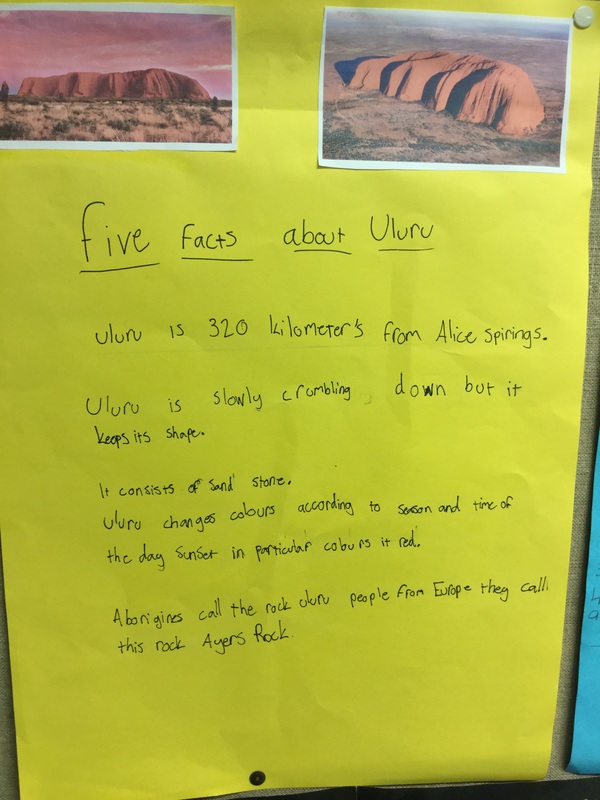 Five Facts about Uluru
Uluru is 320 kilometer's from Alice spirings.
Uluru is slowly crumbling down but it
keeps its shape.
It consists of sand stone.
Uluru changes colours according to season and time of
the day sunset in particular colours it red.
Aborigines call the rock uluru people from Europe they call
this rock Ayers Rock.